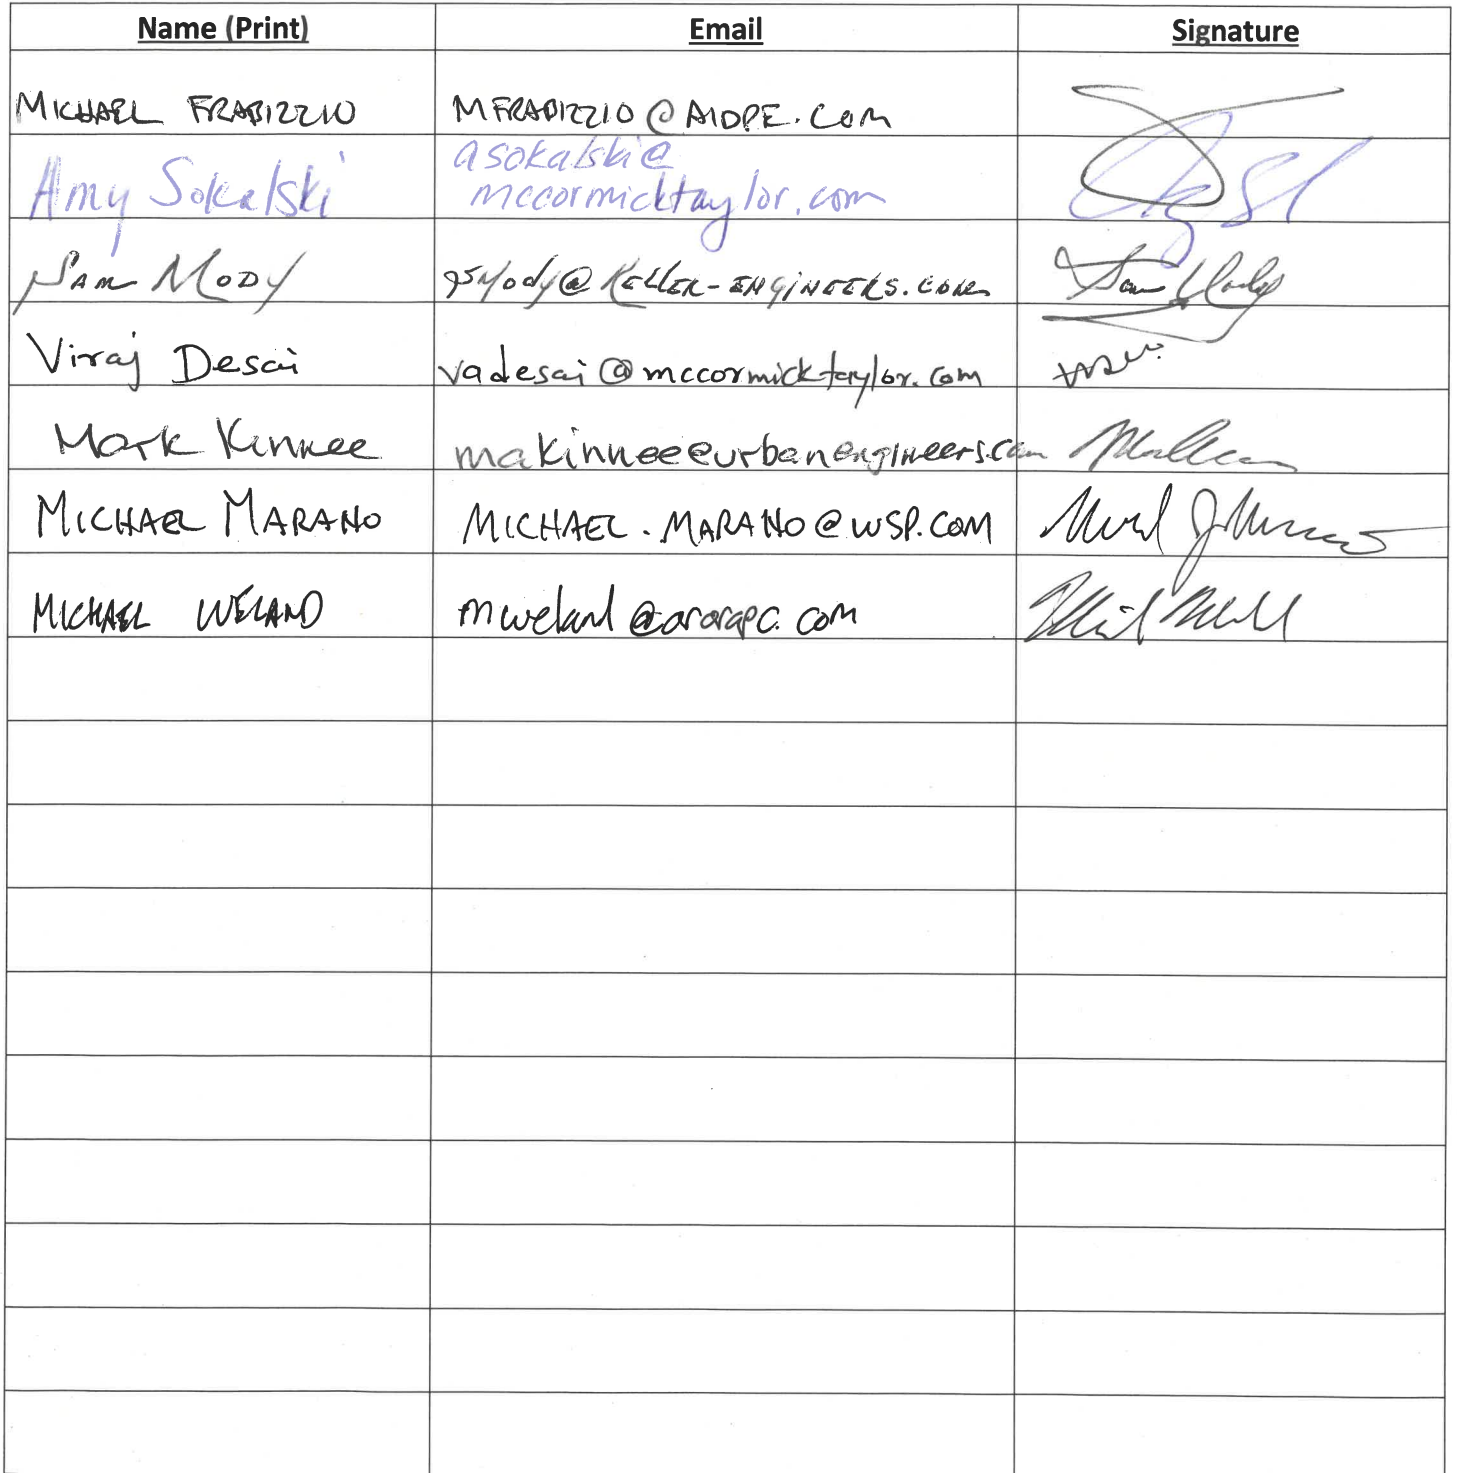 Name (Print) Email Signature
MICHAEL FRABIZZIO MFRABIZZIO@AIDPE.COM
Amy Sokalski asokalski@
mccormicktaylor.com
SAM MODY @KELLER-ENGINEERS.COM
Viraj Desai vadesai@mccormicktaylor.com
Mark Kinnee makinnee@urbanengineers.com
MICHAEL MARANO MICHAEL.MARANO@WSP.COM
MICHAEL WELAND mweland@ararapc.com